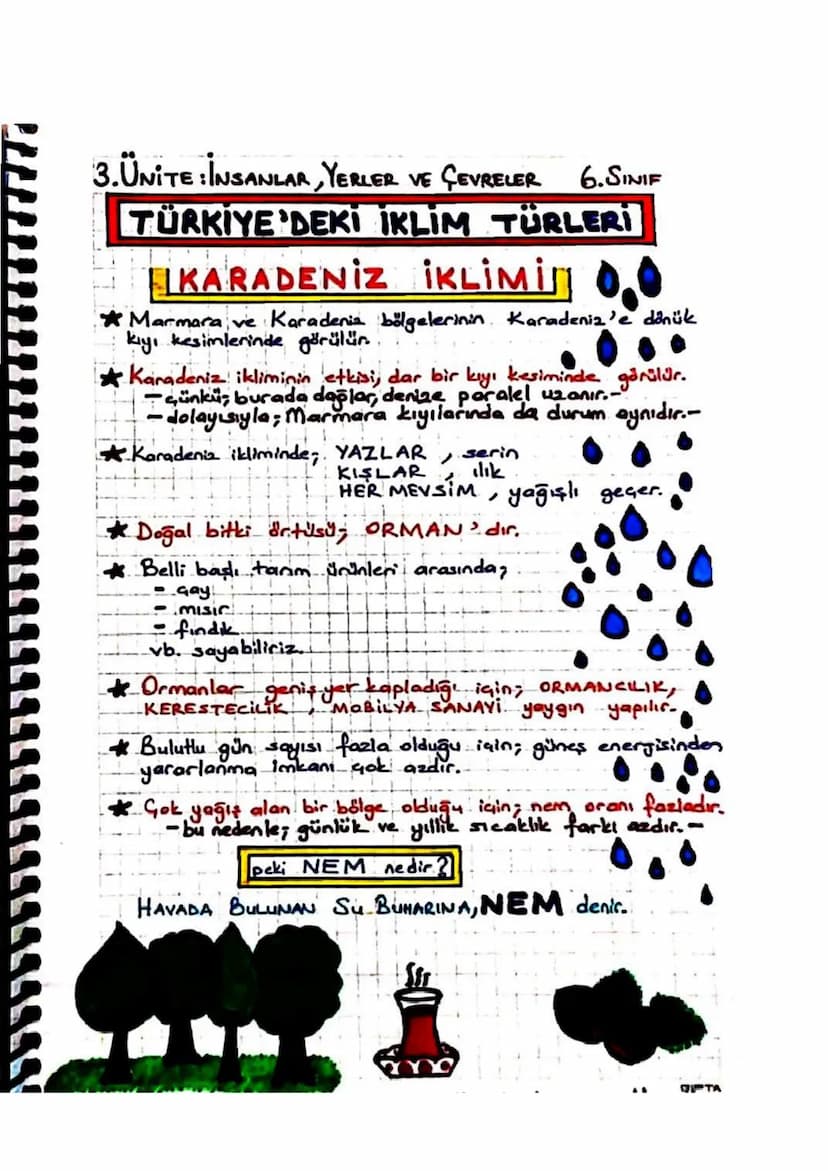 3.ÜNİTE: İNSANLAR, YERLER VE ÇEVRELER 6.SINIF
TÜRKİYE'DEKİ İKLİM TÜRLERİ
KARADENİZ İKLİMİ
★ Marmara ve Karadeniz bölgelerinin Karadeniz'e dönük
kıyı kesimlerinde görülür.
★ Karadeniz ikliminin etkisi, dar bir kıyı kesiminde görülür.
- çünkü; burada dağlar, denize paralel uzanır.-
- dolayısıyla; Marmara kıyılarında da durum aynıdır.-
★ Karadeniz ikliminde; YAZLAR, serin
KIŞLAR, ılık
HER MEVSİM, yağışlı geçer.
★ Doğal bitki örtüsü; ORMAN'dır.
★ Belli başlı tarım ürünleri arasında;
- çay
- mısır
- fındık
vb. sayabiliriz.
★ Ormanlar geniş yer kapladığı için; ORMANCILIK,
KERESTECİLİK, MOBİLYA SANAYİ yaygın yapılır.
★ Bulutlu gün sayısı fazla olduğu için; güneş energisinden
yararlanma imkanı çok azdır.
★ Çok yağış alan bir bölge olduğu için; nem oranı fazladır.
- bu nedenle; günlük ve yıllık sıcaklık farkı azdır.-
peki NEM nedir?
HAVADA BULUNAN SU BUHARINA, NEM denir.